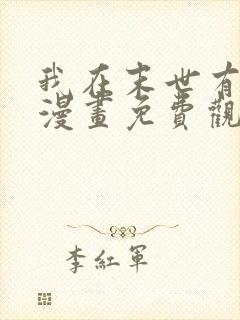 我在末世有
漫畫免費觀
李紅軍